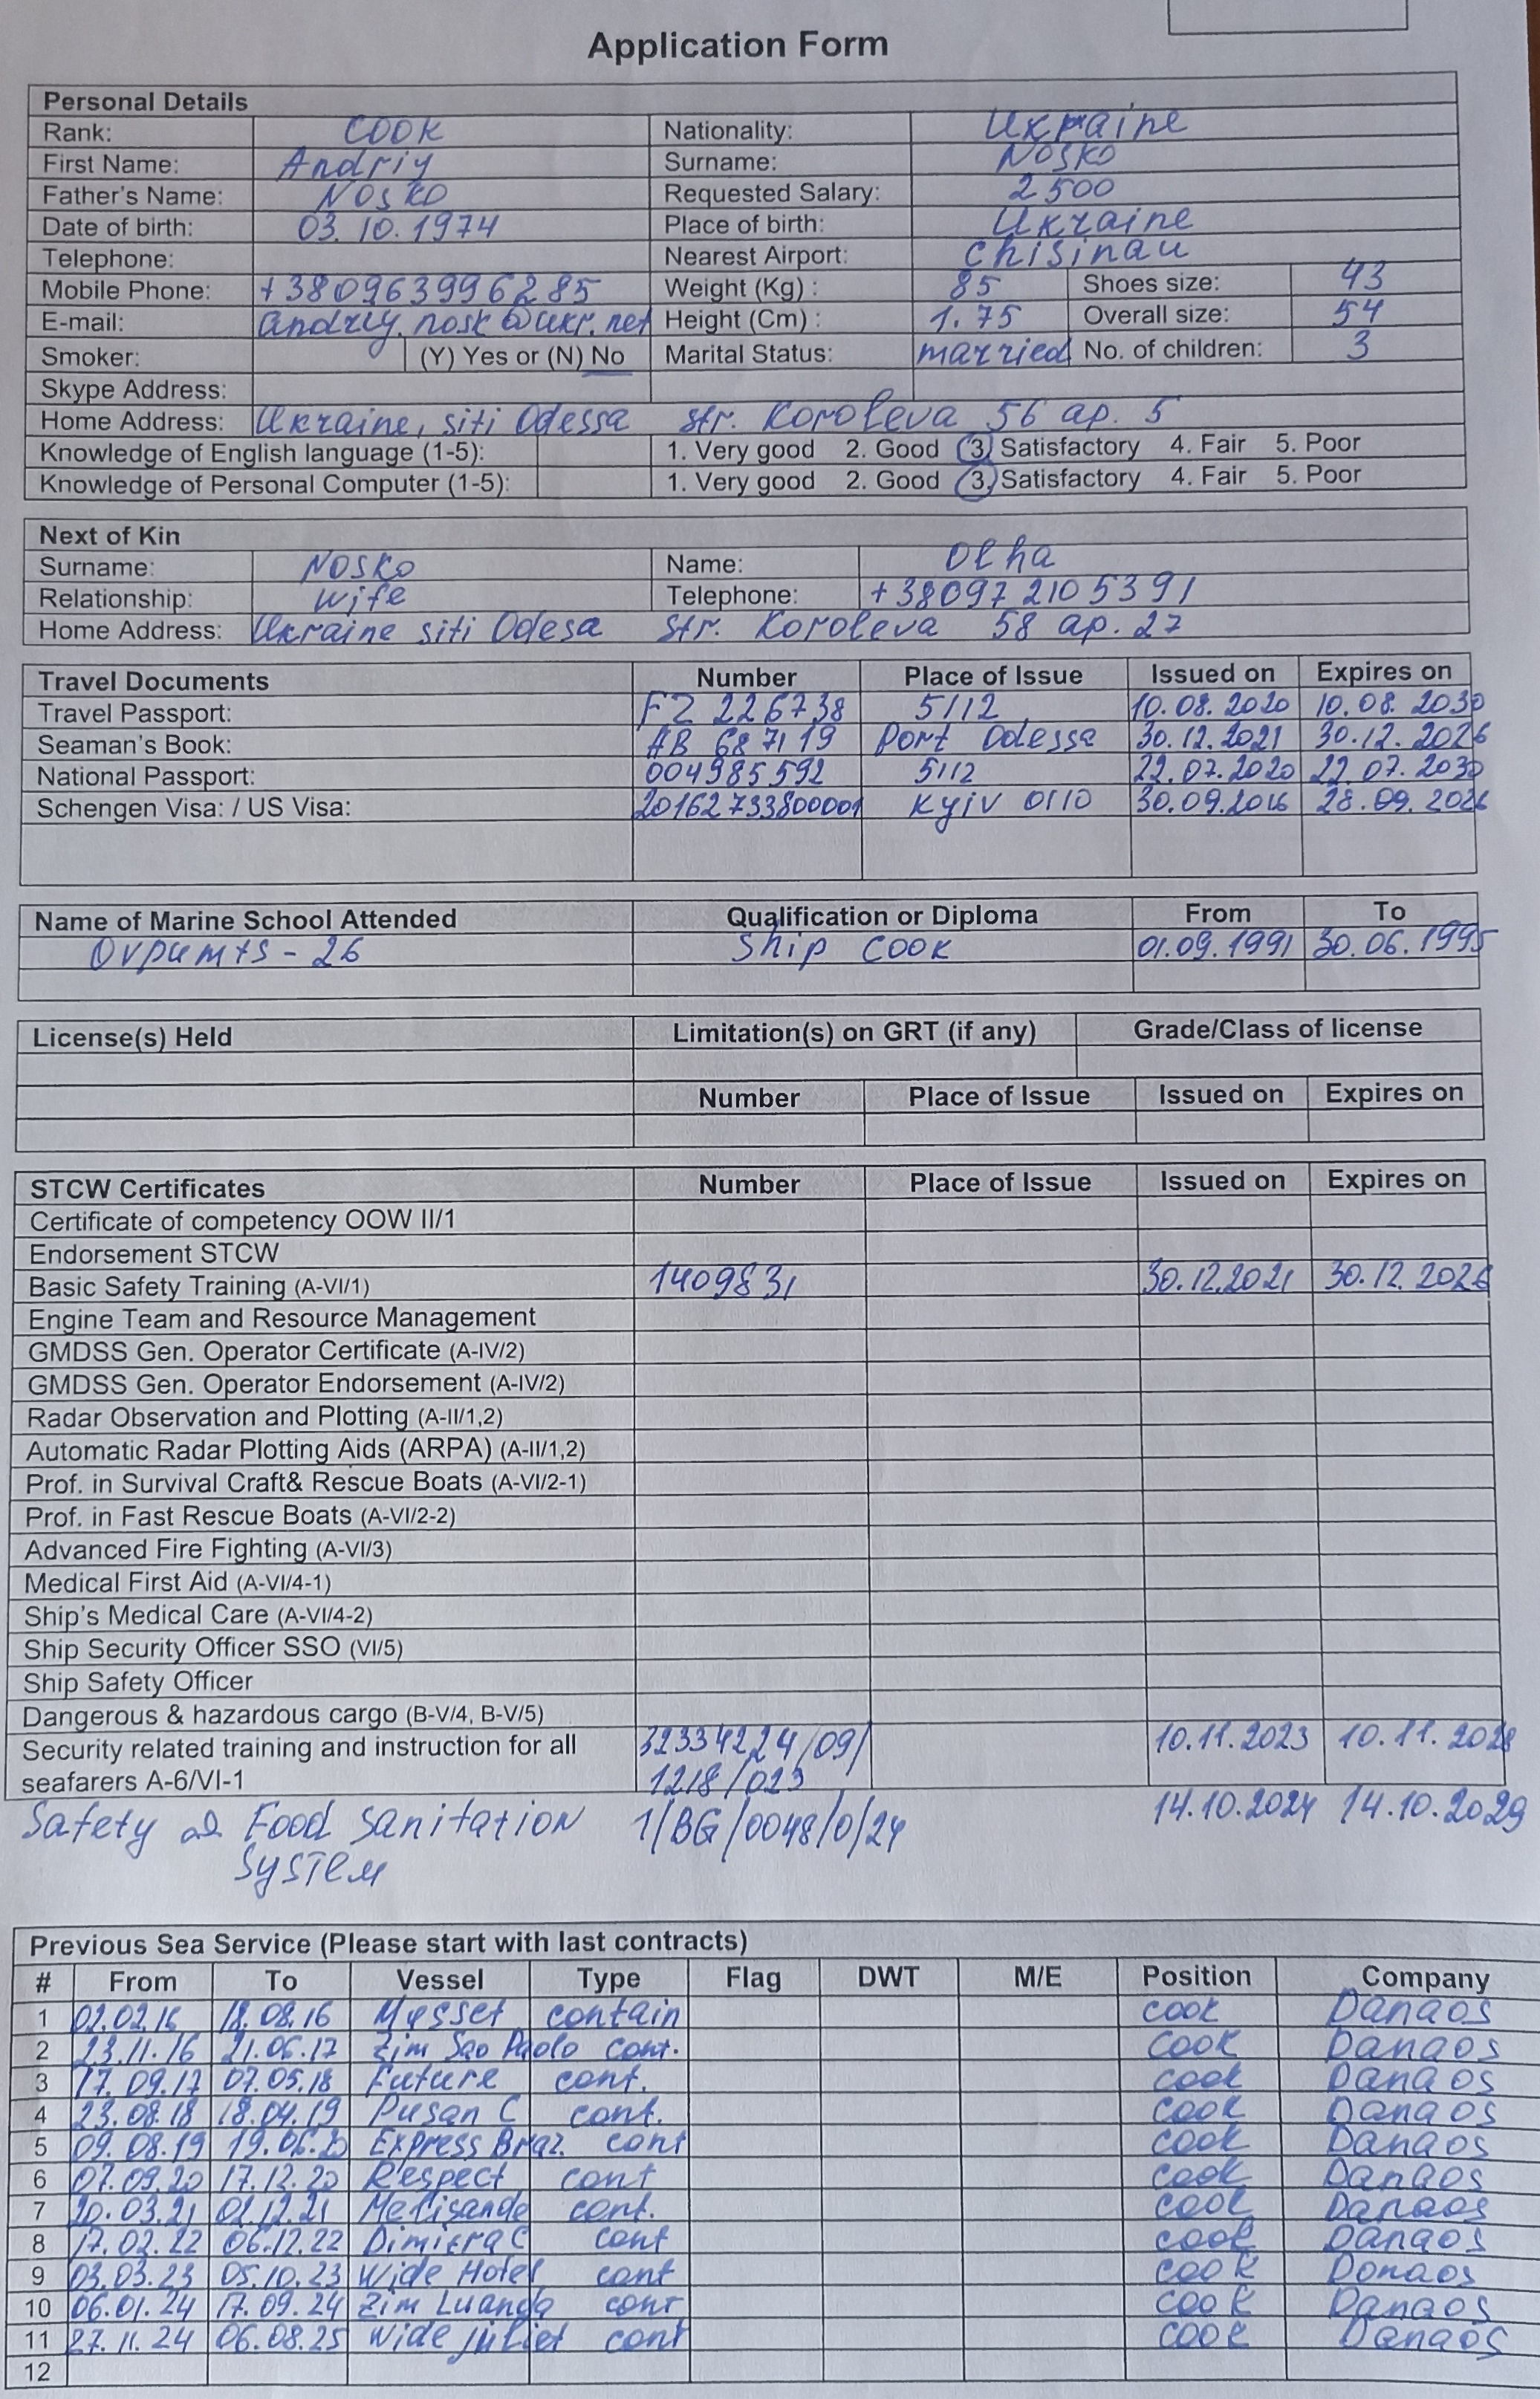 Application Form
Personal Details
Rank: COOK Nationality: Ukraine
First Name: Andriy Surname: NOSKO
Father's Name: NOSKO Requested Salary: 2500
Date of birth: 03.10.1974 Place of birth: Ukraine
Telephone: Nearest Airport: Chisinau
Mobile Phone: +380963996285 Weight (Kg) : 85 Shoes size: 43
E-mail: andriy.nosk@ukr.net Height (Cm) : 1.75 Overall size: 54
Smoker: (Y) Yes or (N) No Marital Status: married No. of children: 3
Skype Address:
Home Address: Ukraine, siti Odessa str. Koroleva 56 ap. 5
Knowledge of English language (1-5): 1. Very good 2. Good 3. Satisfactory 4. Fair 5. Poor
Knowledge of Personal Computer (1-5): 1. Very good 2. Good 3. Satisfactory 4. Fair 5. Poor
Next of Kin
Surname: NOSKO Name: Olha
Relationship: wife Telephone: +380972105391
Home Address: Ukraine siti Odesa str. Koroleva 58 ap. 27
Travel Documents Number Place of Issue Issued on Expires on
Travel Passport: FZ 226738 5112 10.08.2020 10.08.2030
Seaman's Book: AB 687119 Port Odessa 30.12.2021 30.12.2026
National Passport: 004985592 5112 22.07.2020 22.07.2030
Schengen Visa: / US Visa: 20162733800001 Kyiv 0110 30.09.2016 28.09.2026
Name of Marine School Attended Qualification or Diploma From To
Ovpumts - 26 Ship cook 01.09.1991 30.06.1995
License(s) Held Limitation(s) on GRT (if any) Grade/Class of license
Number Place of Issue Issued on Expires on
STCW Certificates Number Place of Issue Issued on Expires on
Certificate of competency OOW II/1
Endorsement STCW
Basic Safety Training (A-VI/1) 1409831 30.12.2021 30.12.2026
Engine Team and Resource Management
GMDSS Gen. Operator Certificate (A-IV/2)
GMDSS Gen. Operator Endorsement (A-IV/2)
Radar Observation and Plotting (A-II/1,2)
Automatic Radar Plotting Aids (ARPA) (A-II/1,2)
Prof. in Survival Craft& Rescue Boats (A-VI/2-1)
Prof. in Fast Rescue Boats (A-VI/2-2)
Advanced Fire Fighting (A-VI/3)
Medical First Aid (A-VI/4-1)
Ship's Medical Care (A-VI/4-2)
Ship Security Officer SSO (VI/5)
Ship Safety Officer
Dangerous & hazardous cargo (B-V/4, B-V/5)
Security related training and instruction for all 32334224/09/ 10.11.2023 10.11.2028
seafarers A-6/VI-1 1218/023
Safety Food sanitation 1/BG/0048/0/24 14.10.2024 14.10.2029
system
Previous Sea Service (Please start with last contracts)
# From To Vessel Type Flag DWT M/E Position Company
1 02.02.16 18.08.16 contain cook Danaos
2 23.11.16 21.06.17 Zim Sao Paolo cont. cook Danaos
3 17.09.17 07.05.18 Future cont. cook Danaos
4 23.08.18 18.04.19 Pusan C cont. cook Danaos
5 09.08.19 19.06.20 Express Braz. cont cook Danaos
6 07.09.20 17.12.20 Respect cont cook Danaos
7 20.03.21 02.12.21 Melisande cont. cook Danaos
8 17.02.22 06.12.22 Dimitra C cont cook Danaos
9 03.03.23 05.10.23 Wide Hotel cont cook Donaos
10 06.01.24 17.09.24 Zim Luanda cont cook Danaos
11 27.11.24 06.08.25 Wide juliet cont cook Danaos
12